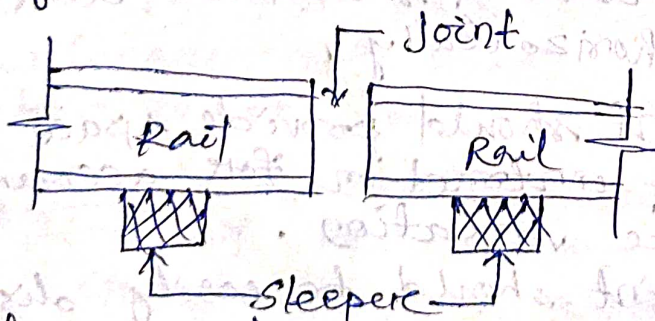 Joint
Rail
Rail
Sleeperc